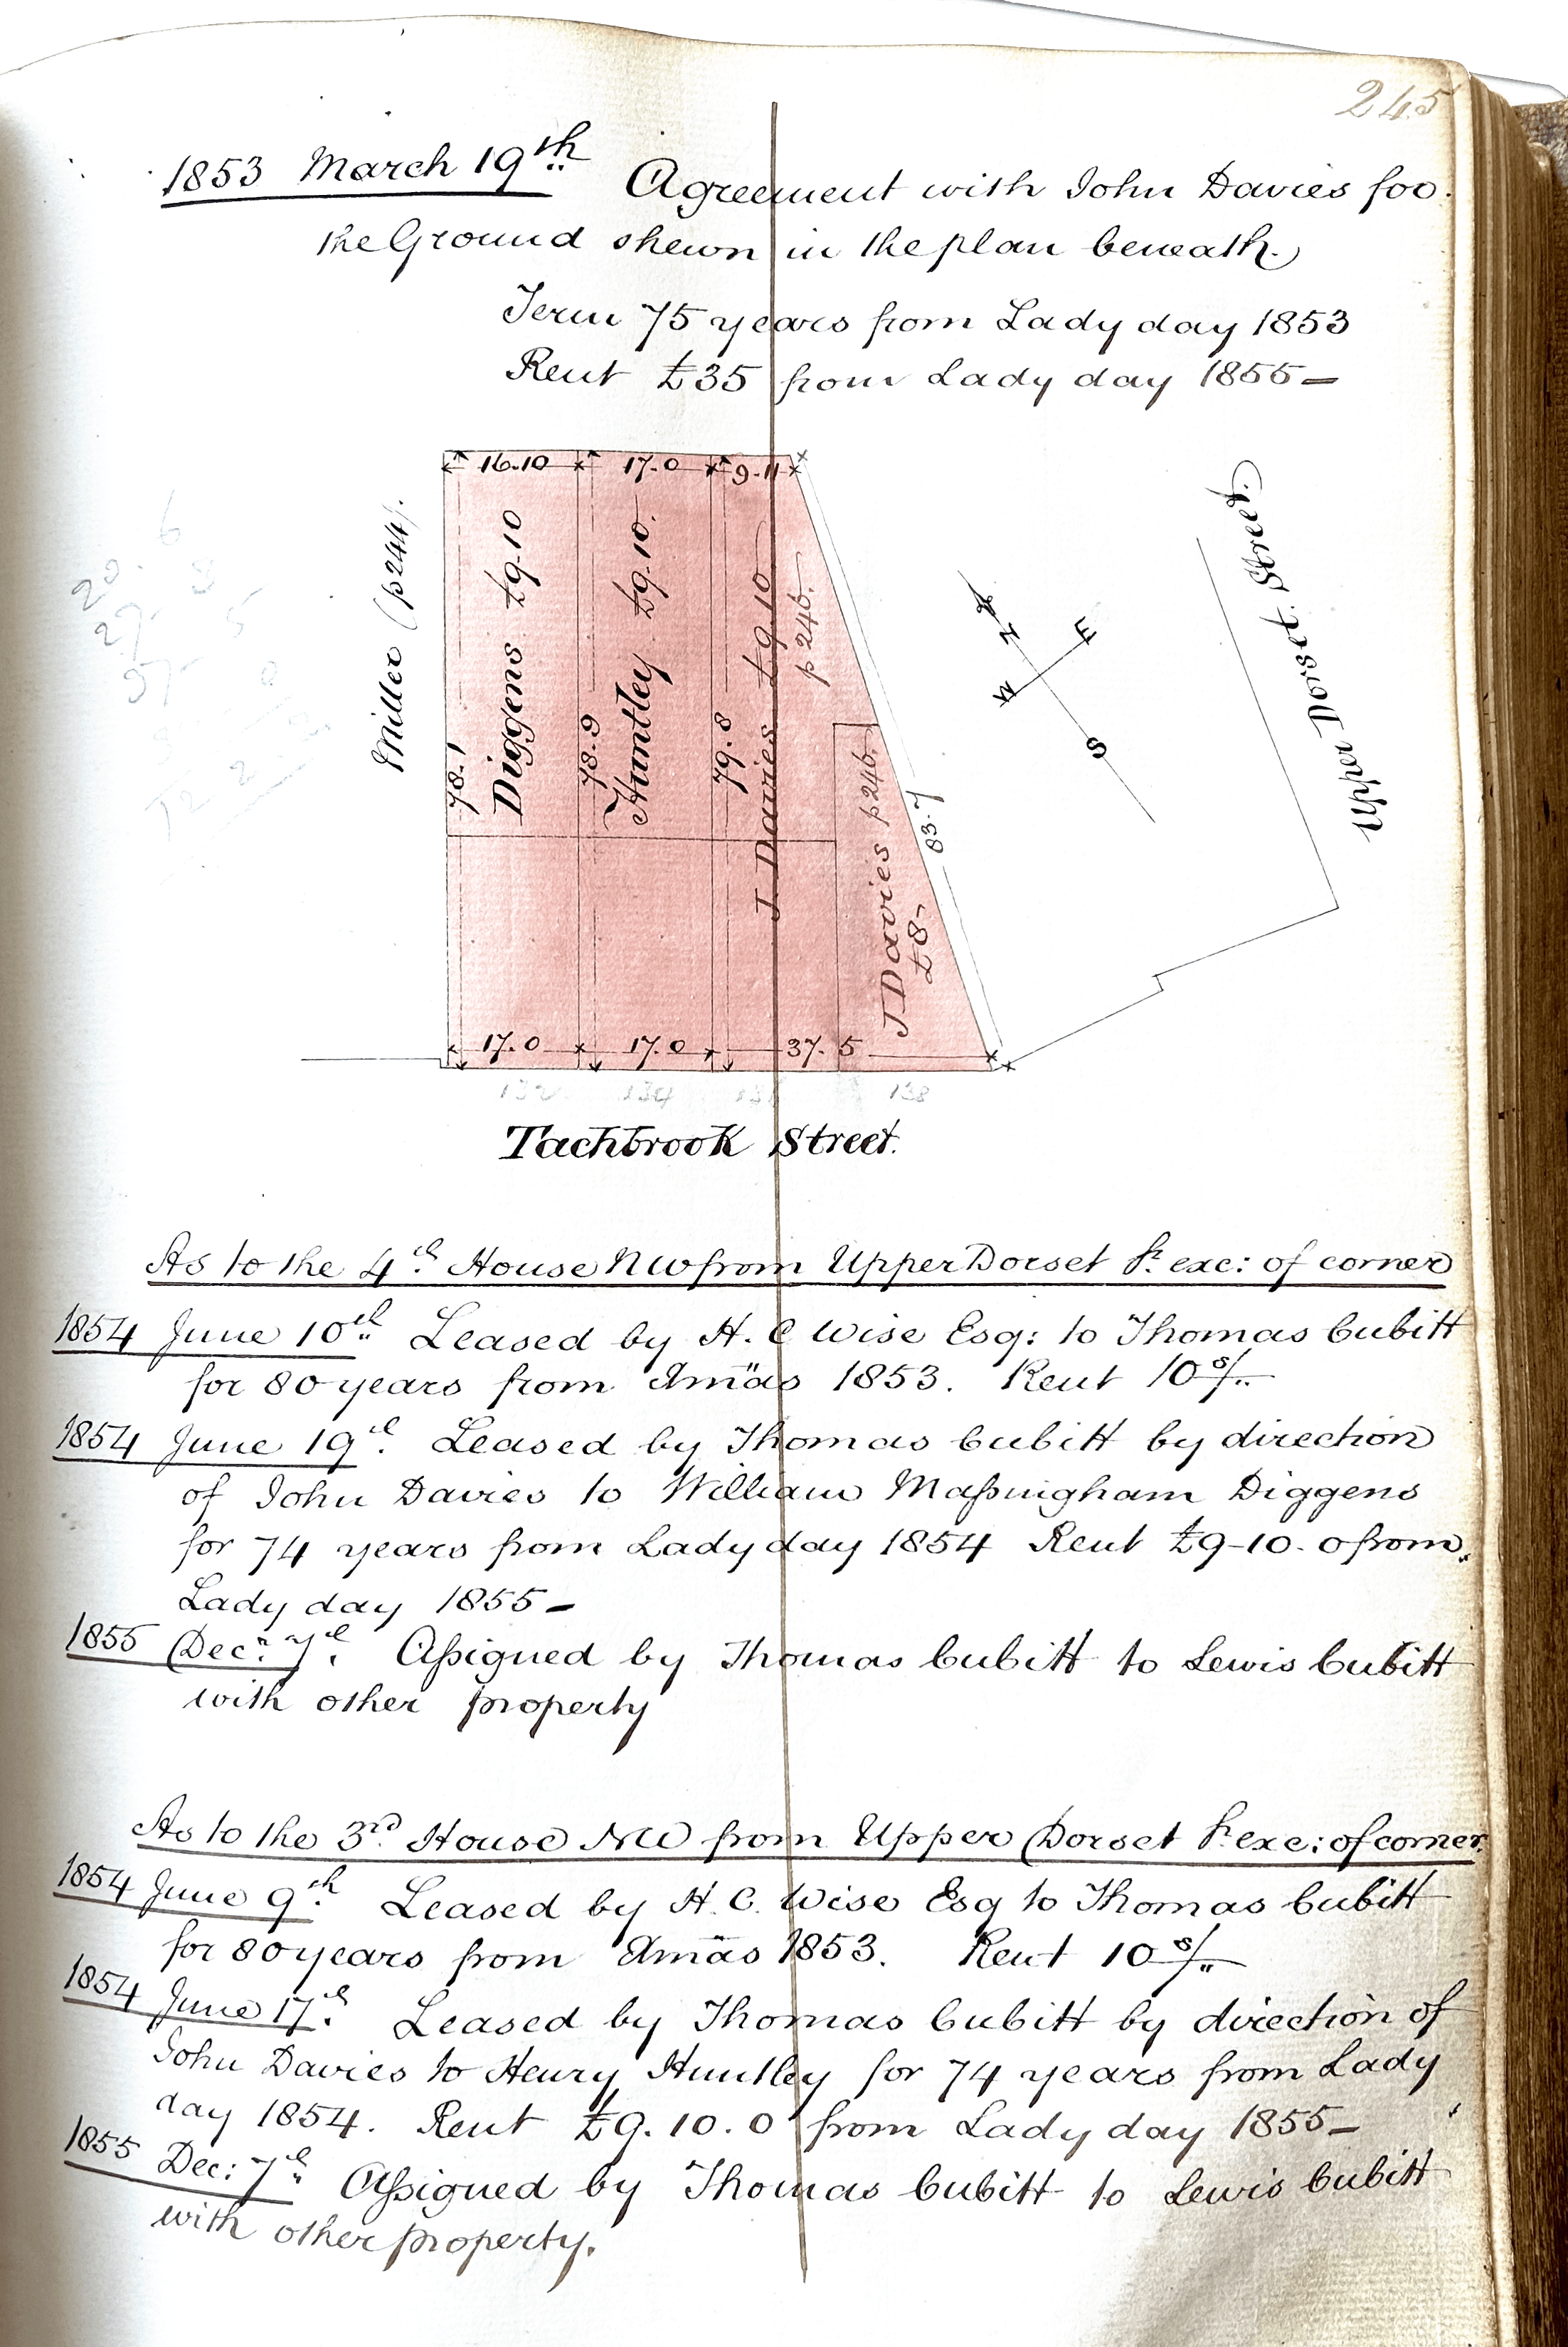 245
1853 March 19th Agreement with John Davies for
the Ground shewn in the plan beneath.
Term 75 years from Lady day 1853
Rent £35 from Lady day 1855 —
16.10 17.0 9.11
Miller (p 244).
78.1
Diggens £9.10
78.9
Huntley £9.10.
79.8
J. Davies £9.10
p 246.
J Davies p 246.
£8-
83.7
N E S W
Upper Dorset Street.
17.0 17.0 37.5
132 134 136 138
Tachbrook Street.
As to the 4th House NW from Upper Dorset St. exc: of corner
1854 June 10th Leased by H. C Wise Esq: to Thomas Cubitt
for 80 years from Xmas 1853. Rent 10s/-
1854 June 19th. Leased by Thomas Cubitt by direction
of John Davies to William Maſsingham Diggens
for 74 years from Lady day 1854 Rent £9-10.0 from
Lady day 1855 —
1855 Decr. 7th. Aſsigned by Thomas Cubitt to Lewis Cubitt
with other property
As to the 3rd. House NW from Upper Dorset St. exc: of corner.
1854 June 9th. Leased by H. C. Wise Esq to Thomas Cubitt
for 80 years from Xmas 1853. Rent 10s/-
1854 June 17th. Leased by Thomas Cubitt by direction of
John Davies to Henry Huntley for 74 years from Lady
day 1854. Rent £9.10.0 from Lady day 1855 —
1855 Dec: 7th. Aſsigned by Thomas Cubitt to Lewis Cubitt
with other property.